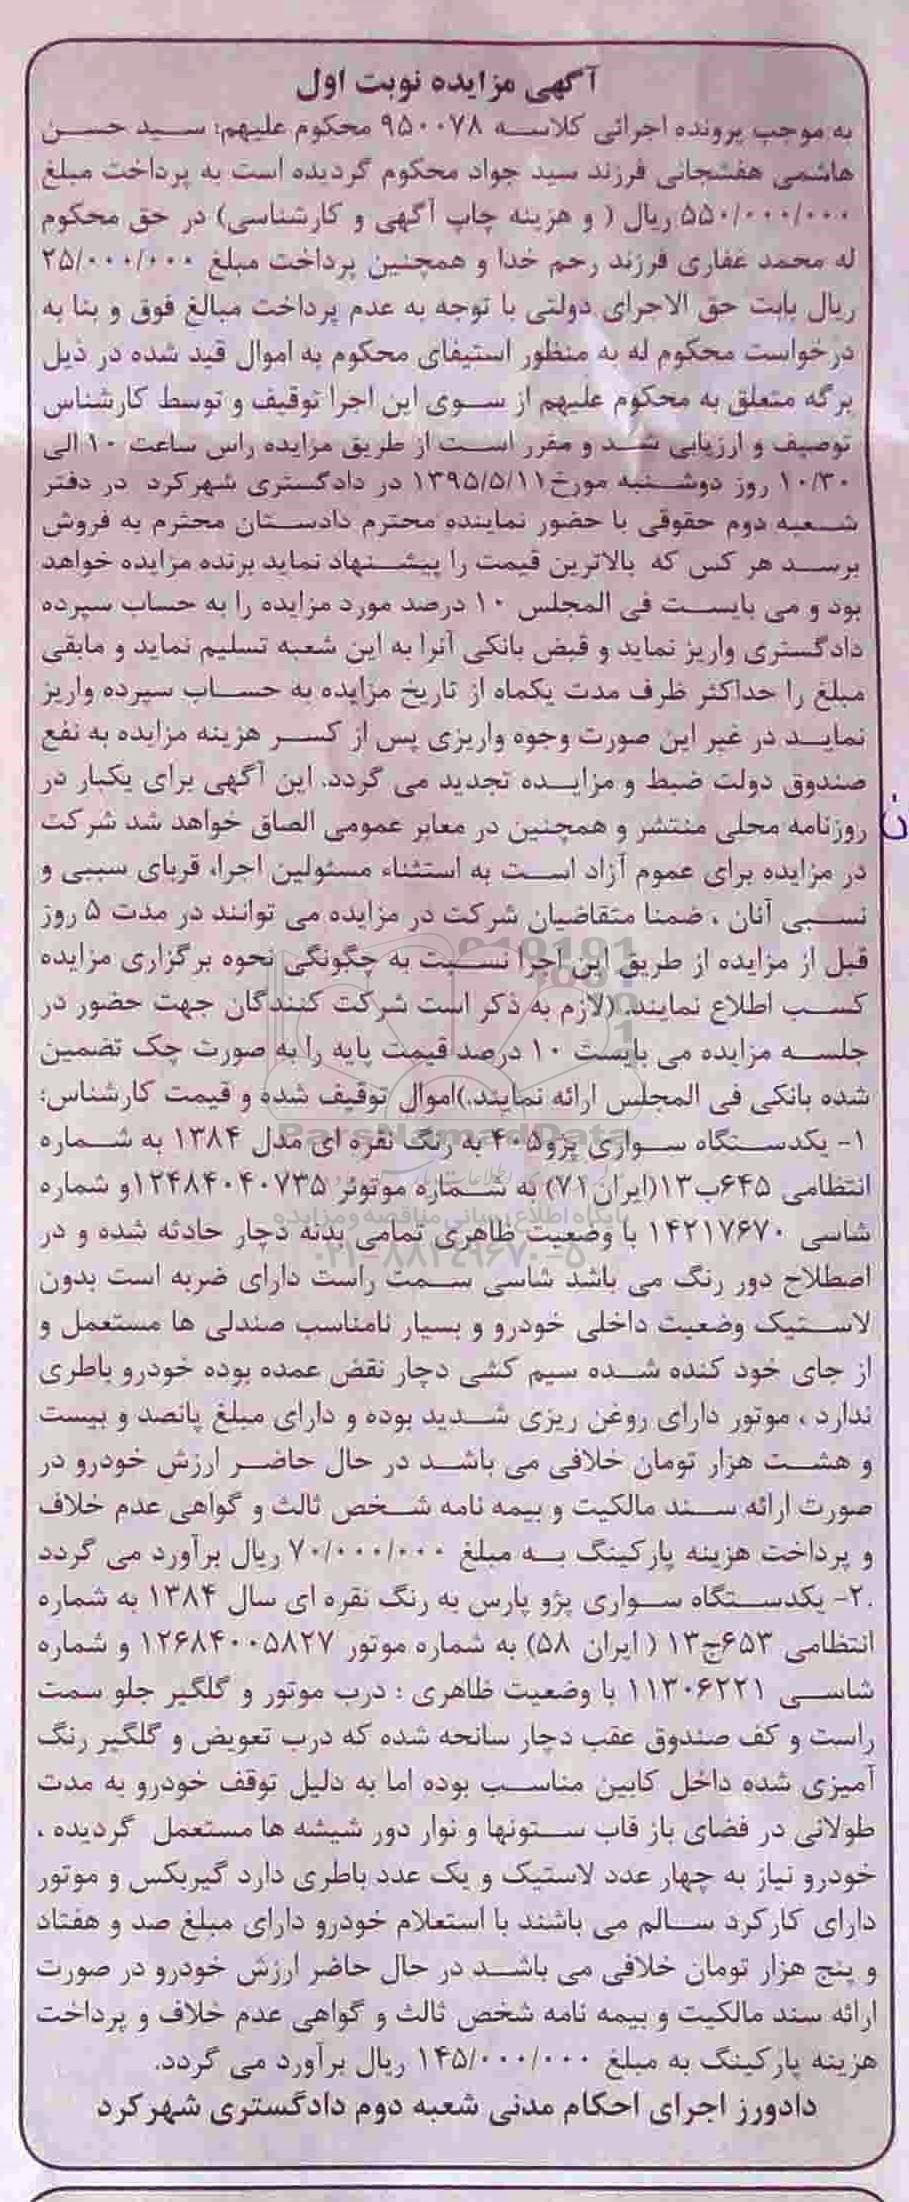 آگهی مزایده نوبت اول
به موجب پرونده اجرائی کلاسه ۹۵۰۰۷۸ محکوم علیهم: سید حسن
هاشمی هفشجانی فرزند سید جواد محکوم گردیده است به پرداخت مبلغ
۵۵۰/۰۰۰/۰۰۰ ریال ( و هزینه چاپ آگهی و کارشناسی) در حق محکوم
له محمد غفاری فرزند رحم خدا و همچنین پرداخت مبلغ ۲۵/۰۰۰/۰۰۰
ریال بابت حق الاجرای دولتی با توجه به عدم پرداخت مبالغ فوق و بنا به
درخواست محکوم له به منظور استیفای محکوم به اموال قید شده در ذیل
برگه متعلق به محکوم علیهم از سوی این اجرا توقیف و توسط کارشناس
توصیف و ارزیابی شد و مقرر است از طریق مزایده راس ساعت ۱۰ الی
۱۰/۳۰ روز دوشنبه مورخ۱۳۹۵/۵/۱۱ در دادگستری شهرکرد در دفتر
شعبه دوم حقوقی با حضور نماینده محترم دادستان محترم به فروش
برسد هر کس که بالاترین قیمت را پیشنهاد نماید برنده مزایده خواهد
بود و می بایست فی المجلس ۱۰ درصد مورد مزایده را به حساب سپرده
دادگستری واریز نماید و قبض بانکی آنرا به این شعبه تسلیم نماید و مابقی
مبلغ را حداکثر ظرف مدت یکماه از تاریخ مزایده به حساب سپرده واریز
نماید در غیر این صورت وجوه واریزی پس از کسر هزینه مزایده به نفع
صندوق دولت ضبط و مزایده تجدید می گردد. این آگهی برای یکبار در
روزنامه محلی منتشر و همچنین در معابر عمومی الصاق خواهد شد شرکت
در مزایده برای عموم آزاد است به استثناء مسئولین اجرا، قربای سببی و
نسبی آنان ، ضمنا متقاضیان شرکت در مزایده می توانند در مدت ۵ روز
قبل از مزایده از طریق این اجرا نسبت به چگونگی نحوه برگزاری مزایده
کسب اطلاع نمایند. (لازم به ذکر است شرکت کنندگان جهت حضور در
جلسه مزایده می بایست ۱۰ درصد قیمت پایه را به صورت چک تضمین
شده بانکی فی المجلس ارائه نمایند.)اموال توقیف شده و قیمت کارشناس:
ParsNamadData
۱- یکدستگاه سواری پژو۴۰۵ به رنگ نقره ای مدل ۱۳۸۴ به شماره
انتظامی ۶۴۵ب۱۳(ایران۷۱) به شماره موتوئر ۱۲۴۸۴۰۴۰۷۳۵و شماره
پایگاه اطلاع رسانی مناقصه و مزایده
شاسی ۱۴۲۱۷۶۷۰ با وضعیت ظاهری تمامی بدنه دچار حادثه شده و در
۰۲۱-۸۸۳۴۹۶۷۰-۵
اصطلاح دور رنگ می باشد شاسی سمت راست دارای ضربه است بدون
لاستیک وضعیت داخلی خودرو و بسیار نامناسب صندلی ها مستعمل و
از جای خود کنده شده سیم کشی دچار نقض عمده بوده خودرو باطری
ندارد ، موتور دارای روغن ریزی شدید بوده و دارای مبلغ پانصد و بیست
و هشت هزار تومان خلافی می باشد در حال حاضر ارزش خودرو در
صورت ارائه سند مالکیت و بیمه نامه شخص ثالث و گواهی عدم خلاف
و پرداخت هزینه پارکینگ به مبلغ ۷۰/۰۰۰/۰۰۰ ریال برآورد می گردد
.۲- یکدستگاه سواری پژو پارس به رنگ نقره ای سال ۱۳۸۴ به شماره
انتظامی ۶۵۳ج۱۳ ( ایران ۵۸) به شماره موتور ۱۲۶۸۴۰۰۵۸۲۷ و شماره
شاسی ۱۱۳۰۶۲۲۱ با وضعیت ظاهری : درب موتور و گلگیر جلو سمت
راست و کف صندوق عقب دچار سانحه شده که درب تعویض و گلگیر رنگ
آمیزی شده داخل کابین مناسب بوده اما به دلیل توقف خودرو به مدت
طولانی در فضای باز قاب ستونها و نوار دور شیشه ها مستعمل گردیده ،
خودرو نیاز به چهار عدد لاستیک و یک عدد باطری دارد گیربکس و موتور
دارای کارکرد سالم می باشند با استعلام خودرو دارای مبلغ صد و هفتاد
و پنج هزار تومان خلافی می باشد در حال حاضر ارزش خودرو در صورت
ارائه سند مالکیت و بیمه نامه شخص ثالث و گواهی عدم خلاف و پرداخت
هزینه پارکینگ به مبلغ ۱۴۵/۰۰۰/۰۰۰ ریال برآورد می گردد.
دادورز اجرای احکام مدنی شعبه دوم دادگستری شهرکرد